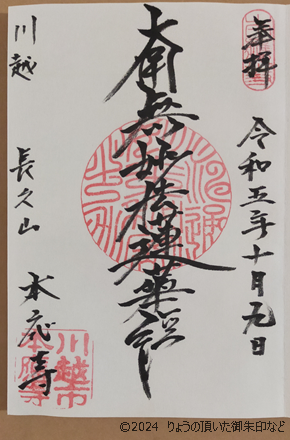 奉拝
令和五年十月九日
南無妙法蓮華経
川越 長久山 本応寺
川越市
本應寺
©2024 りょうの頂いた御朱印など